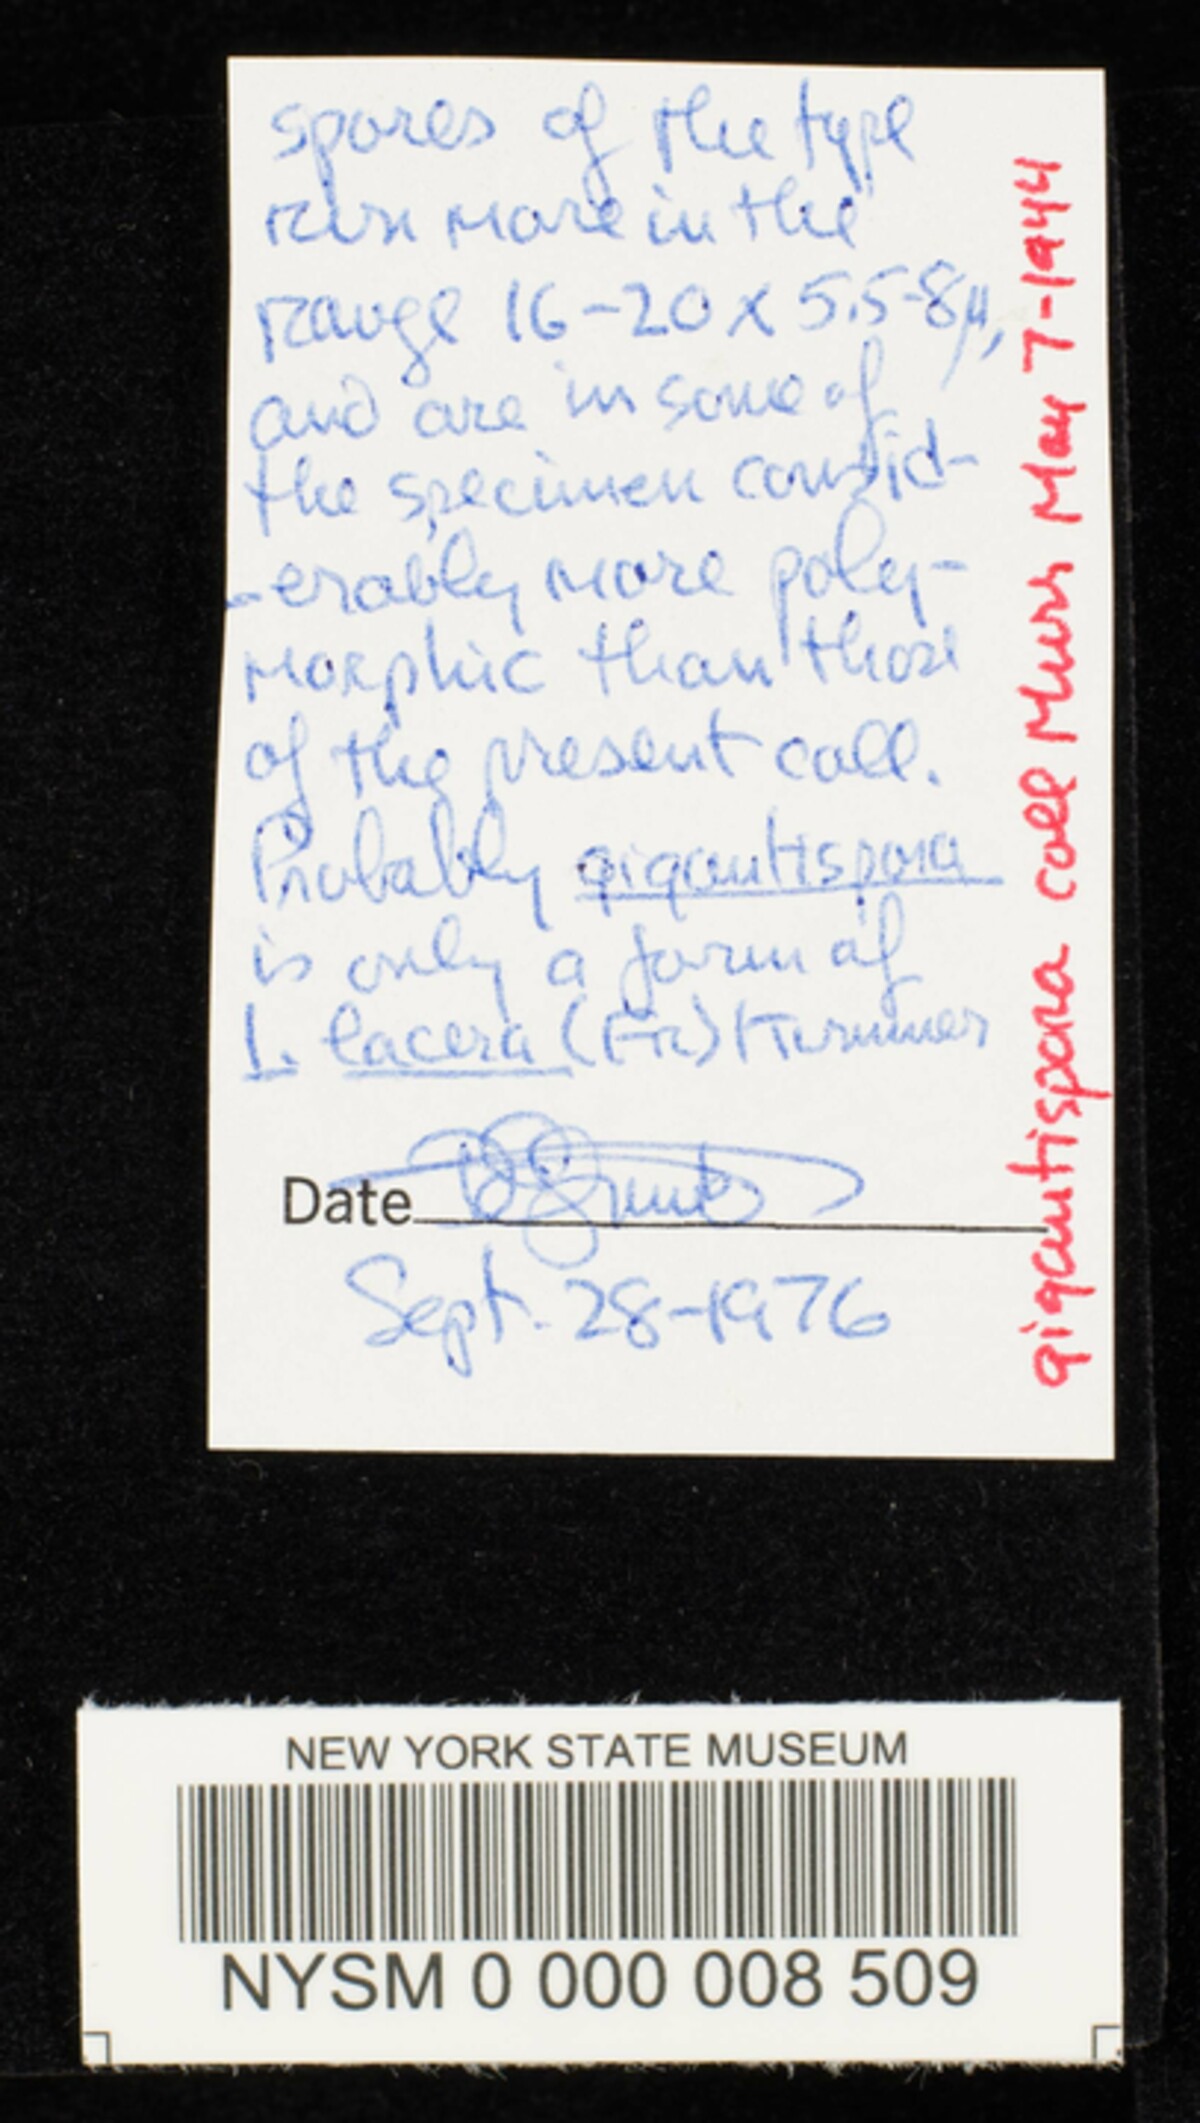 spores of the type
run more in the
range 16-20 x 5.5-8µ,
and are in some of
the specimen consid-
-erably more poly-
morphic than those
of the present coll.
Probably gigantispora
is only a form of
I. lacera (Fr) Kummer
Date
Sept. 28-1976
gigantispora coll Murr May 7-1944
NEW YORK STATE MUSEUM
NYSM 0 000 008 509